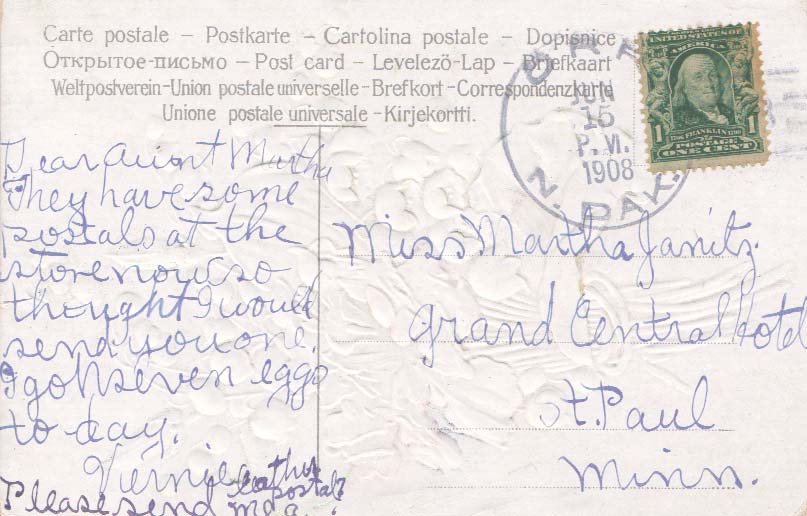 Carte postale – Postkarte – Cartolina postale – Dopisnice
Открытое-письмо – Post card – Levelezö-Lap – Briefkaart
Weltpostverein-Union postale universelle-Brefkort-Correspondenzkarte
Unione postale universale - Kirjekortti.
UNITED STATES OF AMERICA
1 FRANKLIN 1
POSTAGE
ONE CENT
JUN
15
P.M.
1908
N. DAK.
Dear Aunt Martha
They have some
postals at the
store now so
thought I would
send you one.
I got seven eggs
to day.
Vernie
Please send me a leather postal?
Miss Martha Janitz.
Grand Central Hotel
St. Paul
Minn.